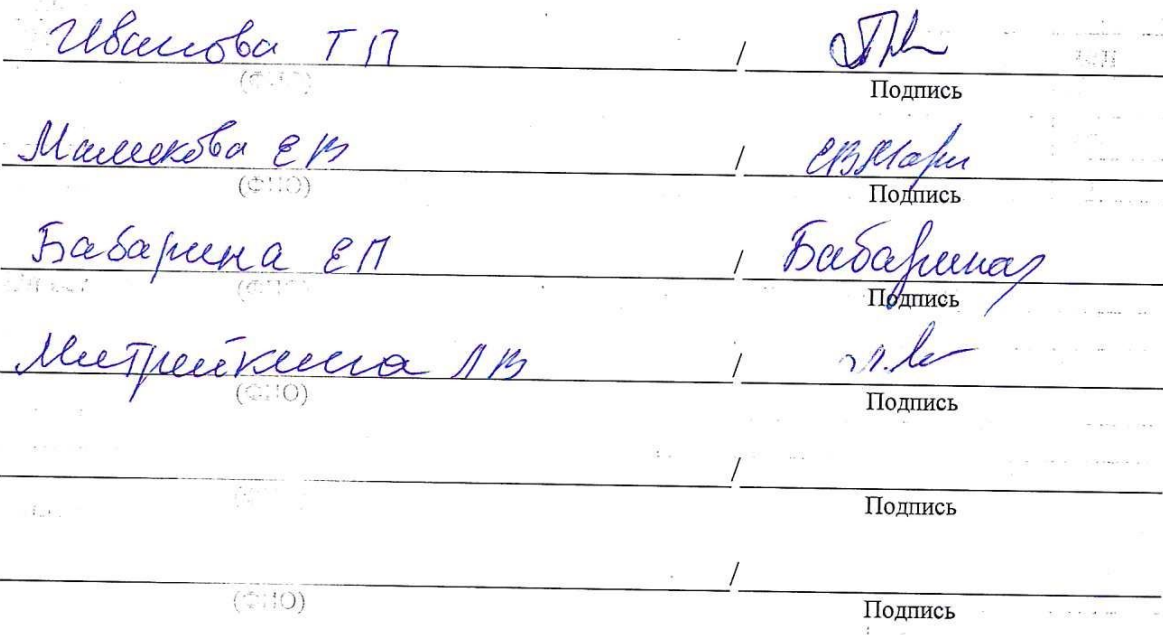 Иванова Т П /
(ФИО) Подпись
Маликова Е В /
(ФИО) Подпись
Бабарина ЕП / Бабарина
(ФИО) Подпись
Митрейкина Л В /
(ФИО) Подпись
/
(ФИО) Подпись
/
(ФИО) Подпись